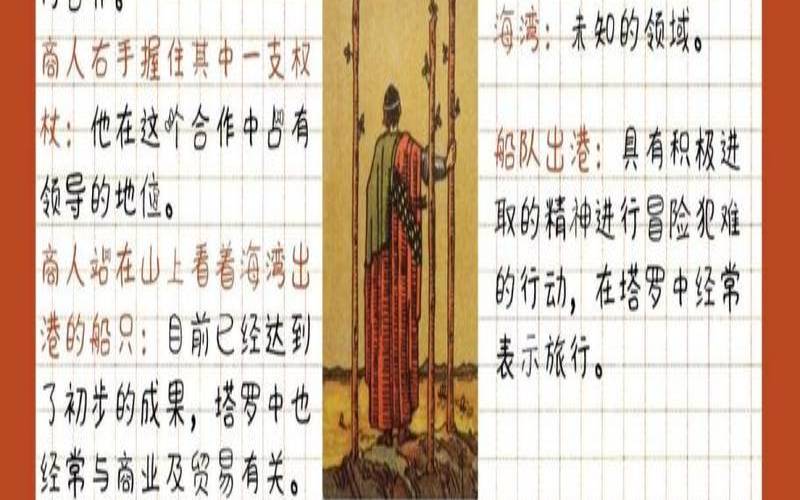 商人右手握住其中一支权
杖：他在这个合作中占有
领导的地位。
商人站在山上看着海湾出
港的船只：目前已经达到
了初步的成果，塔罗中也
经常与商业及贸易有关。
海湾：未知的领域。
船队出港：具有积极进
取的精神进行冒险犯难
的行动，在塔罗中经常
表示旅行。